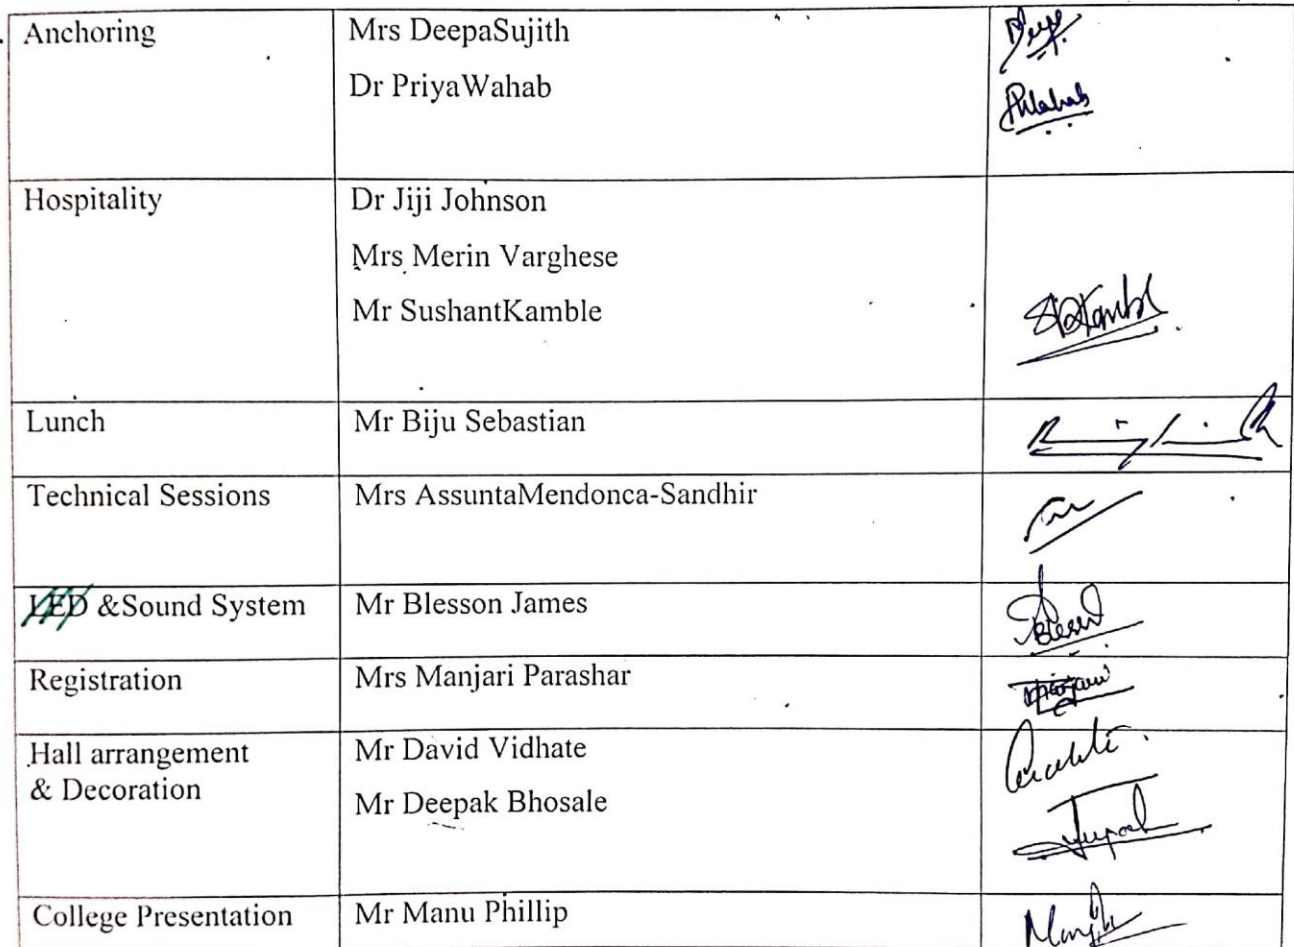 Anchoring
Mrs DeepaSujith
Dr PriyaWahab
Hospitality
Dr Jiji Johnson
Mrs Merin Varghese
Mr SushantKamble
Lunch
Mr Biju Sebastian
Technical Sessions
Mrs AssuntaMendonca-Sandhir
LED &Sound System
Mr Blesson James
Registration
Mrs Manjari Parashar
Hall arrangement
& Decoration
Mr David Vidhate
Mr Deepak Bhosale
College Presentation
Mr Manu Phillip